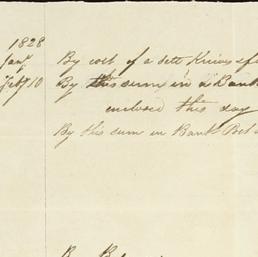 1828
Jany By cost of a sett Knives & f
Feby 10 By this sum in a Bank
enclosed this day
By this sum in Bank
By B